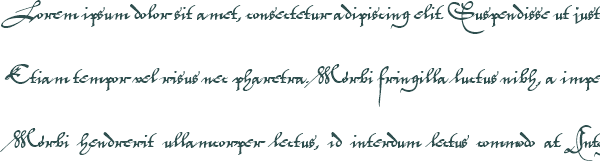 Lorem ipsum dolor sit amet, consectetur adipiscing elit. Suspendisse ut just
Etiam tempor vel risus nec pharetra. Morbi fringilla luctus nibh, a impe
Morbi hendrerit ullamcorper lectus, id interdum lectus commodo at. Inte